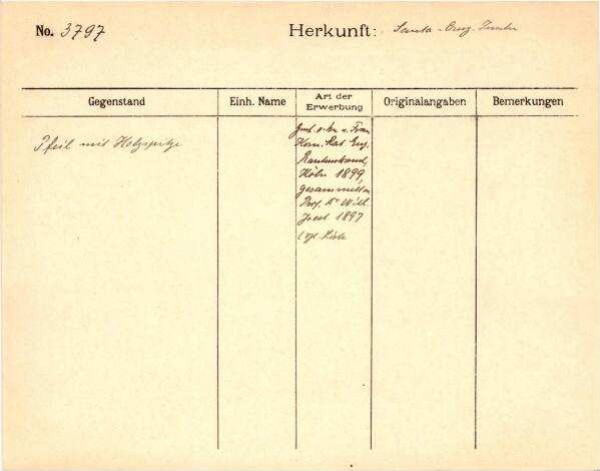 No. 3797
Herkunft: Santa-Cruz-Inseln
Gegenstand
Einh. Name
Art der
Erwerbung
Originalangaben
Bemerkungen
Pfeil mit Holzspitze
v. Frau
Eug.
Rautenstrauch,
Köln 1899,
gesammelt v.
Prof. Dr Wilh.
Joest 1897